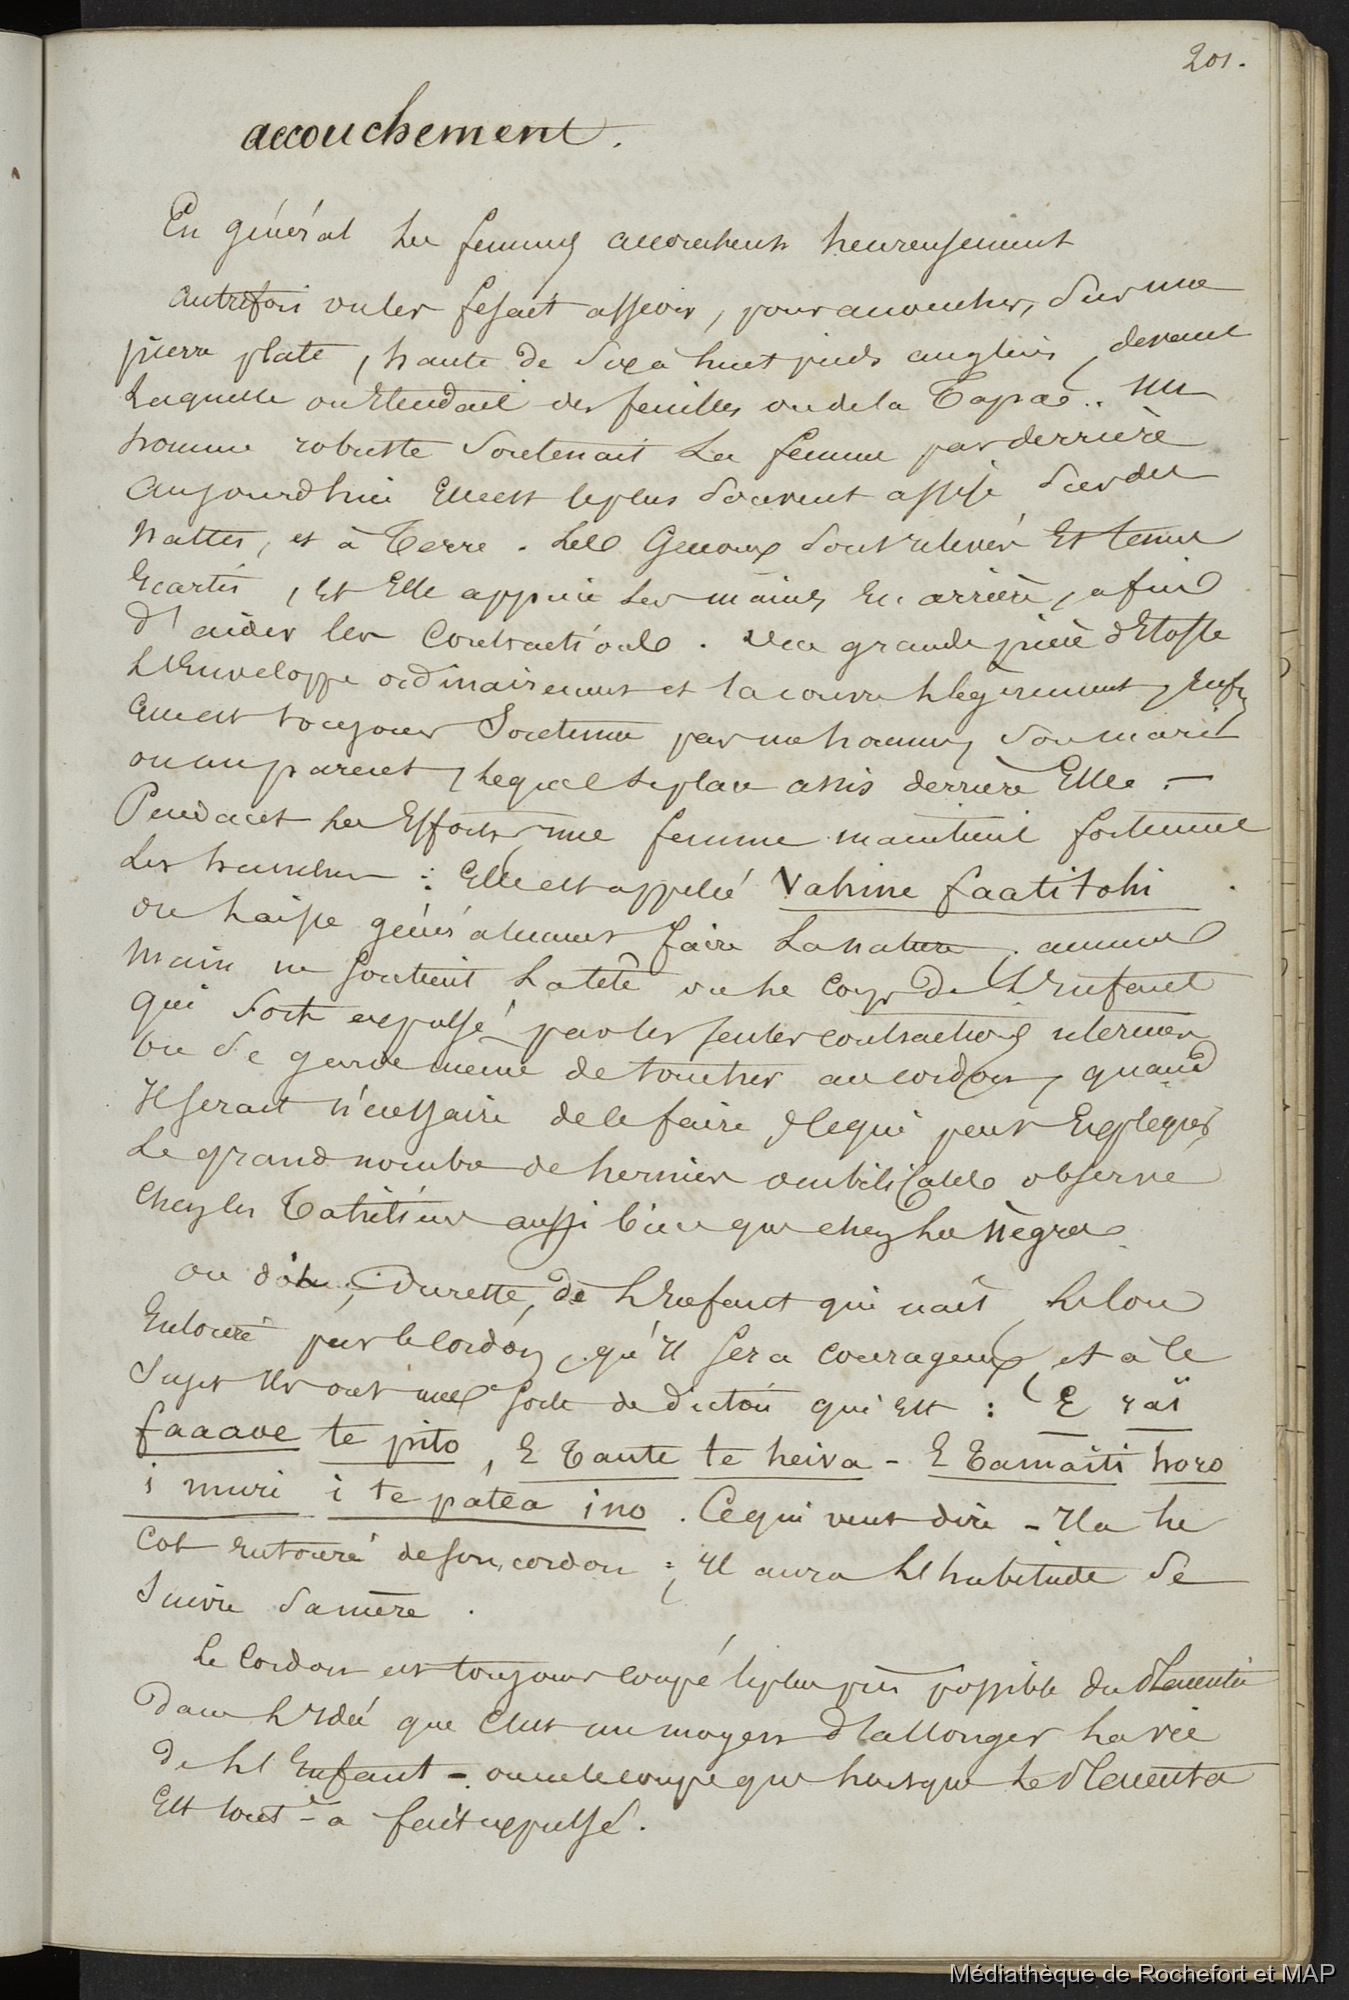 201.
accouchement.
En général les femmes accouchent heureusement
autrefois on les fesait asseoir, pour accoucher, sur une
pierre plate, haute de six à huit pieds anglais, devant
laquelle on étendait des feuilles ou de la Tapa. Un
homme robuste soutenait la femme par derrière
aujourd'hui elle est le plus souvent assise sur des
nattes, et à Terre. Les Genoux sont relevés et tenus
écartés, et elle appuie les mains en arrière, afin
d'aider les contractions. Une grande pièce d'étoffe
l'enveloppe ordinairement et la couvre légèrement, enfin
elle est toujours soutenue par un homme, son mari
ou un parent, lequel se place assis derrière elle. —
Pendant les efforts, une femme maintient fortement
les hanches : elle est appelée Vahine faatitohi.
on laisse généralement faire la nature, aucune
main ne soutient la tête ou le corps de l'enfant
qui sort expulsé par les seules contractions utérines
on se garde même de toucher au cordon, quand
il serait nécessaire de le faire, ce qui peut expliquer
le grand nombre de hernies ombilicales observé
chez les Tahitiens aussi bien que chez les nègres.
on dit, Durette, de l'enfant qui naît le cou
entouré par le cordon, qu'il sera courageux, et à ce
sujet ils ont une sorte de dicton qui est : E rai
faaave te pito, E Taute te heiva - E Tamaiti horo
i muri i te patea ino. Ce qui veut dire - Il a le
col entouré de son cordon ; il aura l'habitude de
suivre sa mère.
Le cordon est toujours coupé le plus près possible du Placenta
dans l'idée que c'est un moyen d'allonger la vie
de l'Enfant - on ne le coupe que lorsque le Placenta
est tout-à fait expulsé.
Médiathèque de Rochefort et MAP